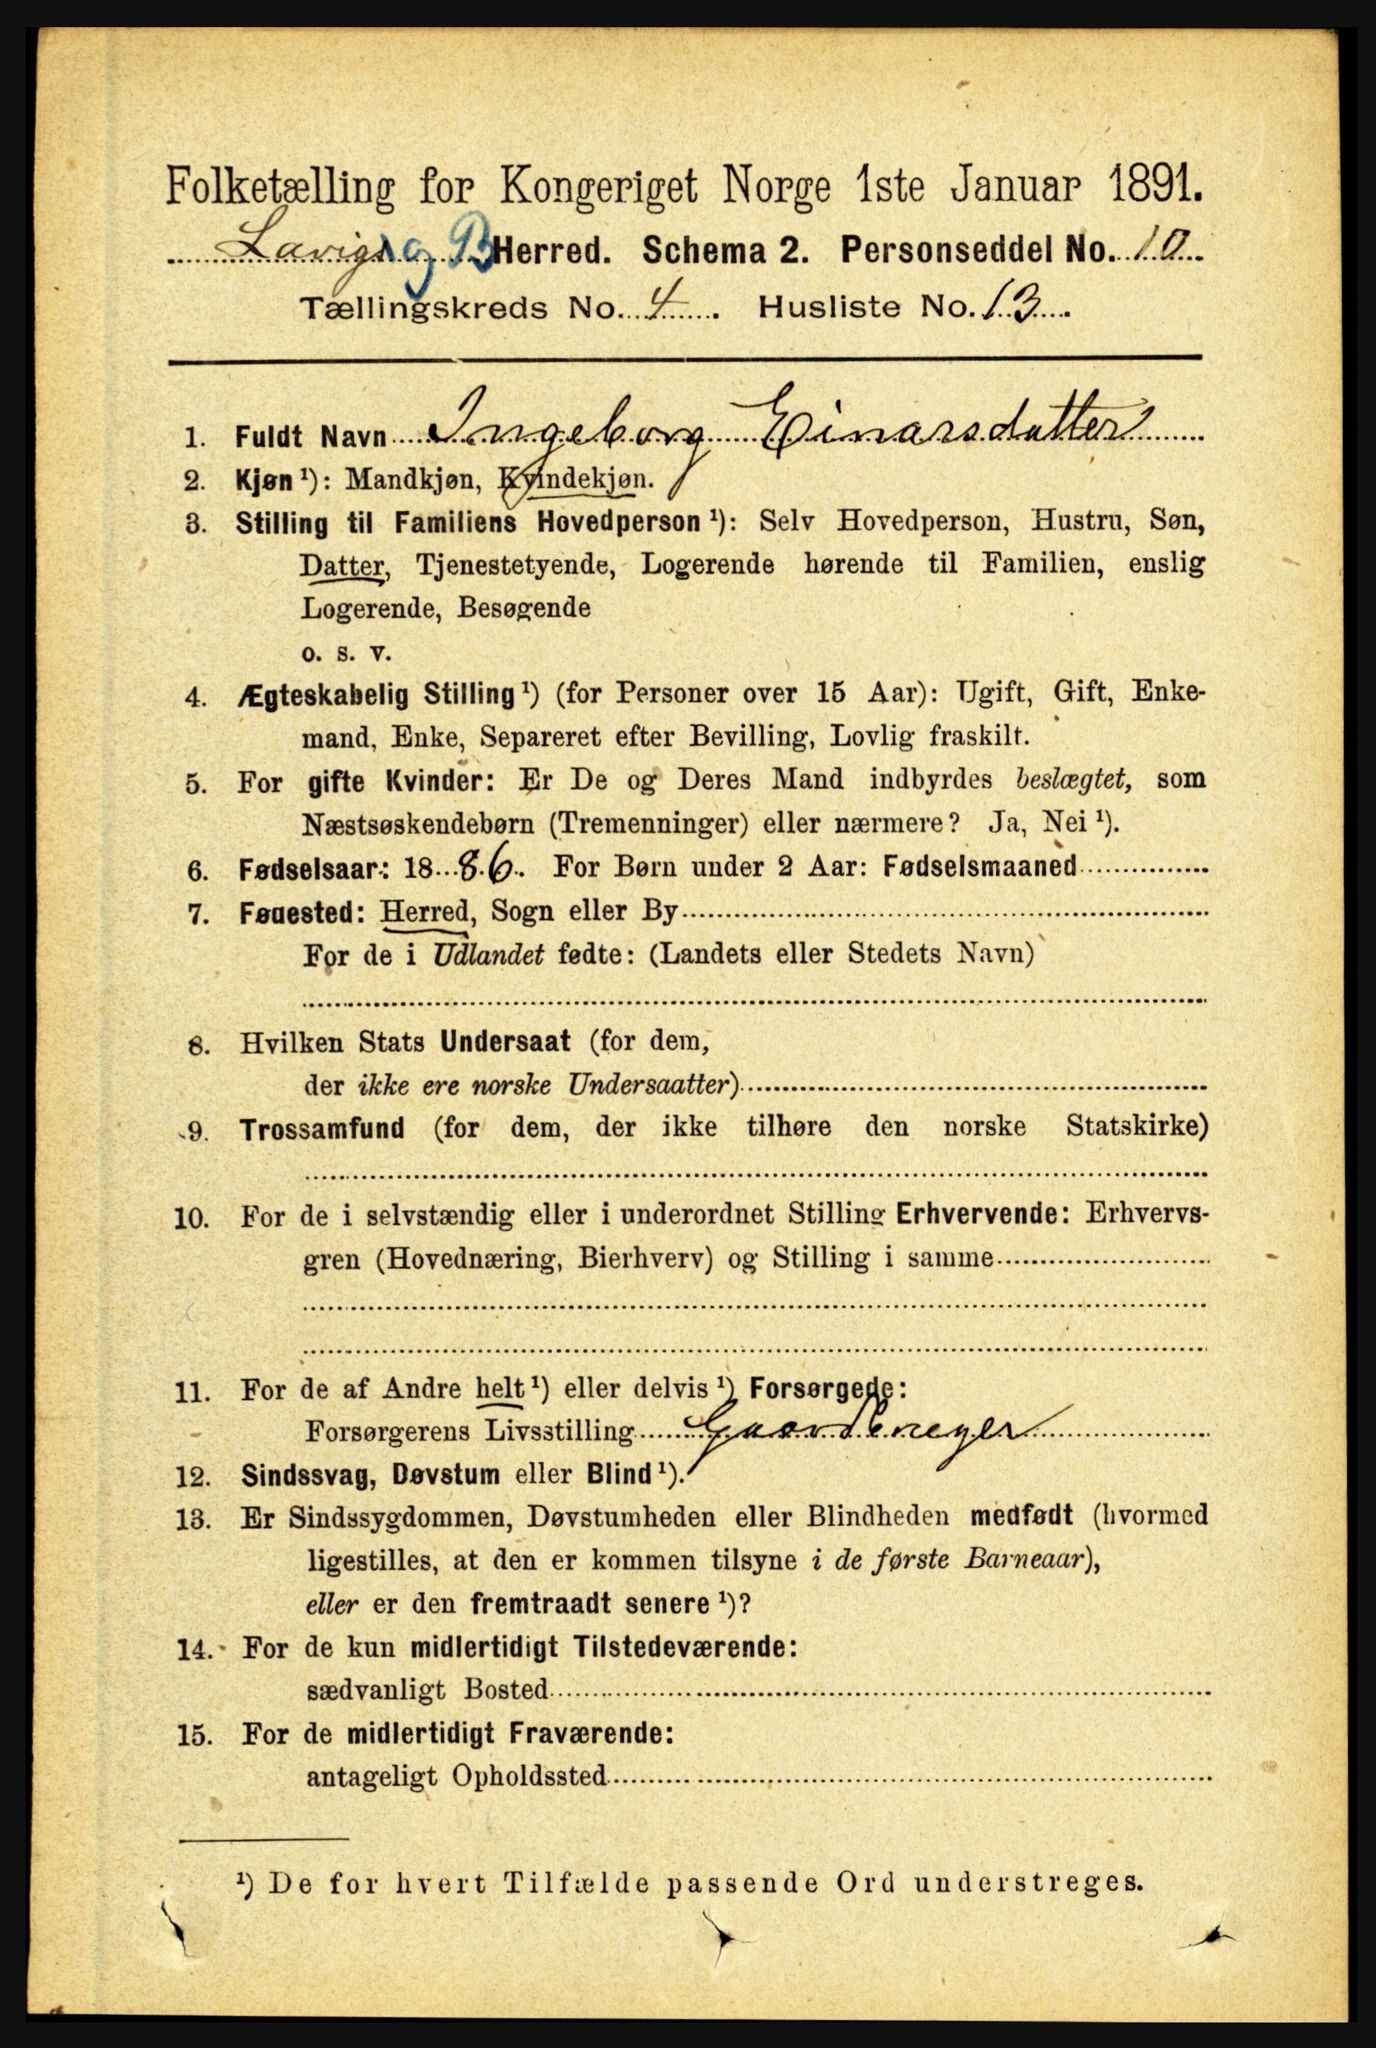 Folketælling for Kongeriget Norge 1ste Januar 1891.
Lavig og B Herred. Schema 2. Personseddel No. 10
Tællingskreds No. 4. Husliste No. 13.
1. Fuldt Navn Ingeborg Einarsdatter
2. Kjøn ¹): Mandkjøn, Kvindekjøn.
3. Stilling til Familiens Hovedperson ¹): Selv Hovedperson, Hustru, Søn,
Datter, Tjenestetyende, Logerende hørende til Familien, enslig
Logerende, Besøgende
o. s. v.
4. Ægteskabelig Stilling ¹) (for Personer over 15 Aar): Ugift, Gift, Enke-
mand, Enke, Separeret efter Bevilling, Lovlig fraskilt.
5. For gifte Kvinder: Er De og Deres Mand indbyrdes beslægtet, som
Næstsøskendebørn (Tremenninger) eller nærmere? Ja, Nei ¹).
6. Fødselsaar: 1886. For Børn under 2 Aar: Fødselsmaaned
7. Fødested: Herred, Sogn eller By
For de i Udlandet fødte: (Landets eller Stedets Navn)
8. Hvilken Stats Undersaat (for dem,
der ikke ere norske Undersaatter)
9. Trossamfund (for dem, der ikke tilhøre den norske Statskirke)
10. For de i selvstændig eller i underordnet Stilling Erhvervende: Erhvervs-
gren (Hovednæring, Bierhverv) og Stilling i samme
11. For de af Andre helt ¹) eller delvis ¹) Forsørgede:
Forsørgerens Livsstilling Gaardeneyer
12. Sindssvag, Døvstum eller Blind ¹).
13. Er Sindssygdommen, Døvstumheden eller Blindheden medfødt (hvormed
ligestilles, at den er kommen tilsyne i de første Barneaar),
eller er den fremtraadt senere ¹)?
14. For de kun midlertidigt Tilstedeværende:
sædvanligt Bosted
15. For de midlertidigt Fraværende:
antageligt Opholdssted
¹) De for hvert Tilfælde passende Ord understreges.